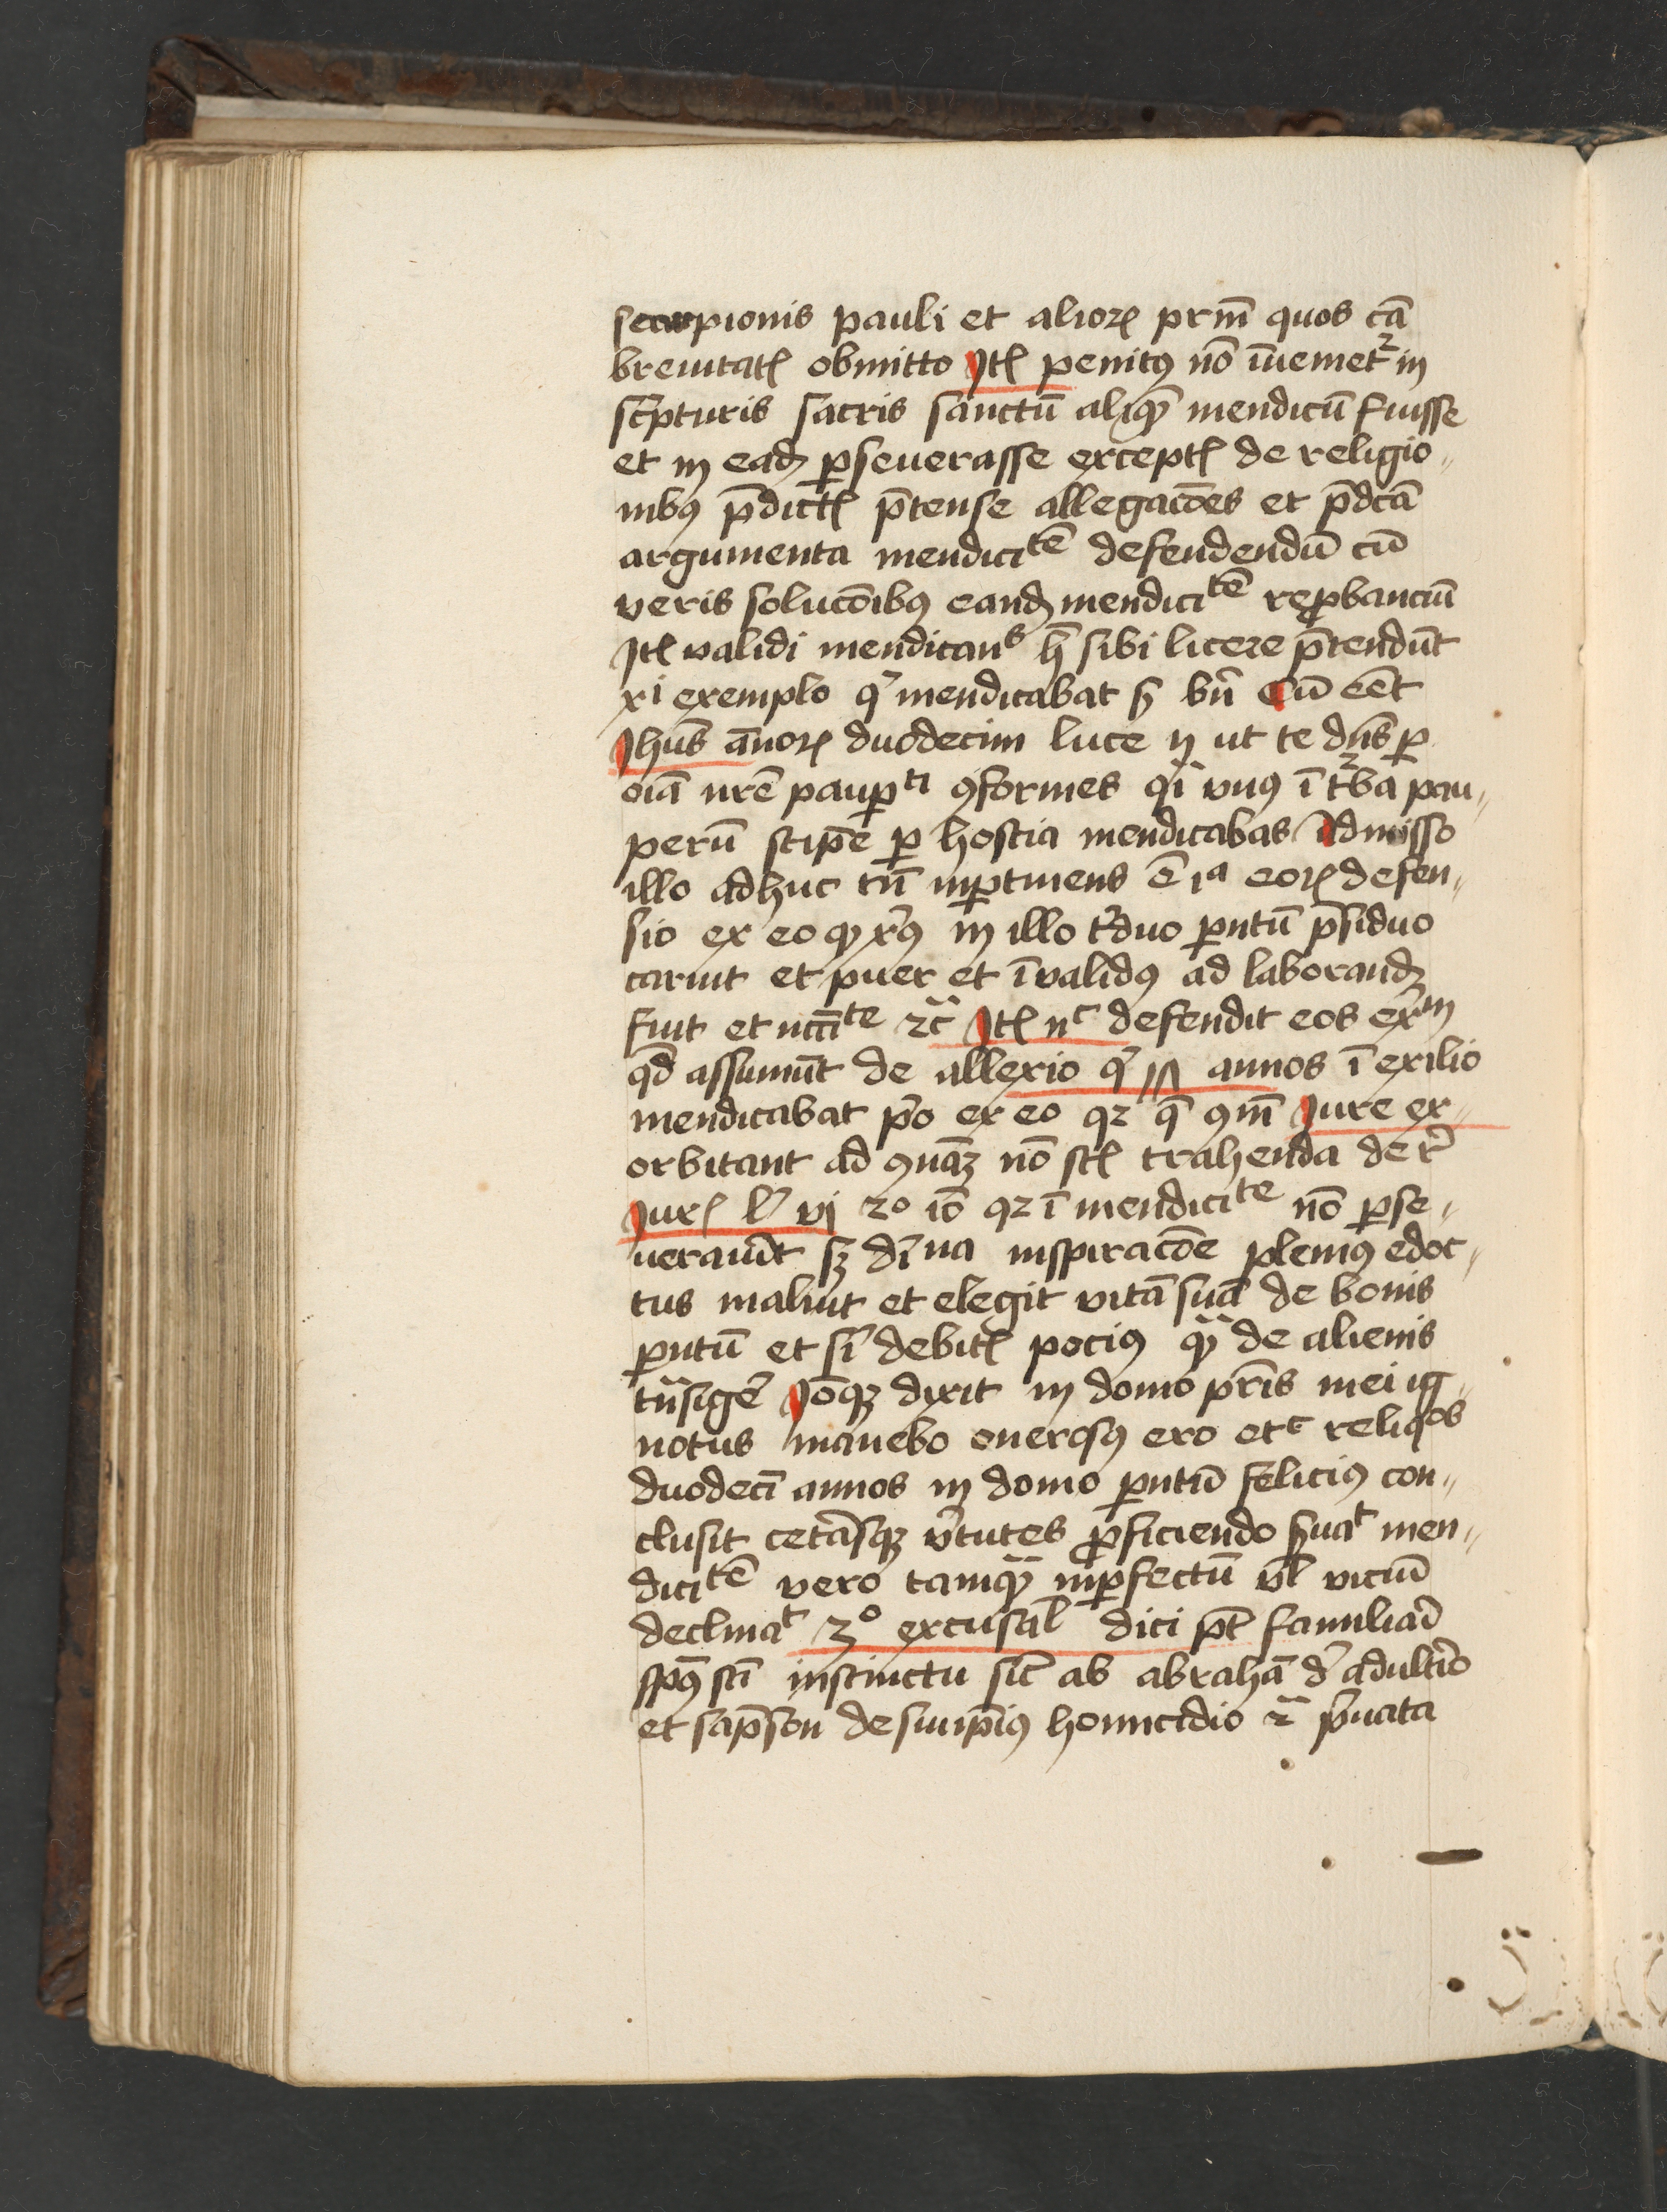 scorpionis pauli et alioꝝ prm̄ quos cā
breuitatꝭ obmitto Itꝭ penitꝰ nō īueniet᷑ in
sc̄pturis sacris sanctū aliqꝫ mendicū fuisse
et in eadꝫ ꝑseuerasse exceptꝭ de religio〃
nibꝰ p̄dictꝭ p̄tense allegacōes et p̄dcā
argumenta mendiciᵗē defendendū cū
veris solucōibꝰ eandꝫ mendiciᵗē reꝓbanciū
Itꝭ validi mendicanˢ h̄ sibi licere p̄tendūt
xi exemplo qͥ mendicabat sꝫ bn̄ Cū eēt
Jhūs ānoꝝ duodecim luce ij ut te dn̄s ꝑ
oīa nr̄e pauꝑᵗⁱ ꝯformes qͥ vnꝰ ī t᷑ba pau〃
perū stipē ꝑ hostia mendicabas Admisso
illo adhuc tn̄ inꝑtinens ē ıᵃ eoꝝ defen〃
sio ex eo qꝫ xp̄ꝰ in illo tͥduo pn̄tū p̄siduo
caruit et puer et īvalidꝰ ad laborandꝫ
fuit et ncc̄ᵗᵉ ⁊c̄ Itꝭ nᶜ defendit eos ex̄ᵐ
qd̄ assumūt de allexio qͥ annos ī exilio
mendicabat pͥo ex eo qꝛ q̄ ꝯm̄ Iure ex〃
orbitant ad ꝯn̄aꝫ nō sꝭ trahenda de r̄
Iurꝭ lͥ vj 2º iō qꝛ ī mendiciᵗᵉ nō ꝑse〃
uerauit sꝫ dīna inspiracōe plenius edoc〃
tus maluit et elegit vitā suā de bonis
pn̄tū et sͥ debitꝭ pociꝰ qꝫ de alienis
tn̄sigē Iōqꝫ dixit in domo pr̄is mei ig〃
notus manebo onerosꝰ ero etᶜ reliqᵒˢ
duodecī annos in domo pn̄tū feliciꝰ con〃
clusit cet̄asqꝫ v̄tutes ꝓficiendo s̄uaᵗ men〃
diciᵗē vero tamqꝫ inꝑfectū vl̄ viciū
declinaᵗ 3º excusaˡ dici pt̄ familiari
spūs sc̄i instinctu sic̄ ab abrahā dͤ adultͥo
et sāpson de suiip̄iꝰ homicidio ⁊ pͥuata